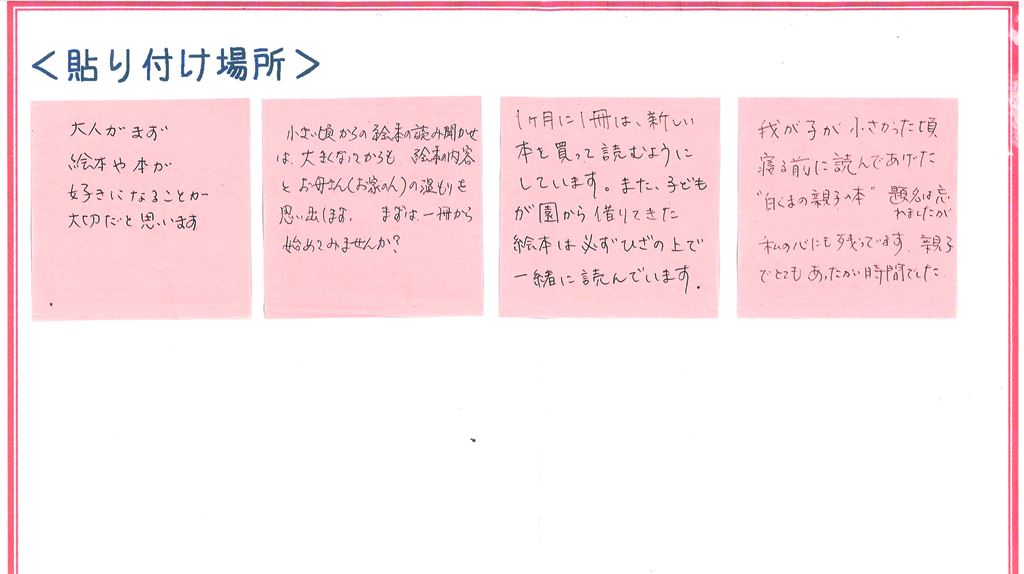 ＜貼り付け場所＞
大人がまず
絵本や本が
好きになることが
大切だと思います
小さい頃からの絵本の読み聞かせ
は、大きくなってからも 絵本の内容
とお母さん(お家の人)の温もりを
思い出します。 まずは一冊から
始めてみませんか?
1ヶ月に1冊は、新しい
本を買って読むように
しています。また、子ども
が園から借りてきた
絵本は必ずひざの上で
一緒に読んでいます。
我が子が小さかった頃
寝る前に読んであげた
"白くまの親子の本" 題名は忘
れましたが
私の心にも残ってます。親子
でとてもあったかい時間でした。